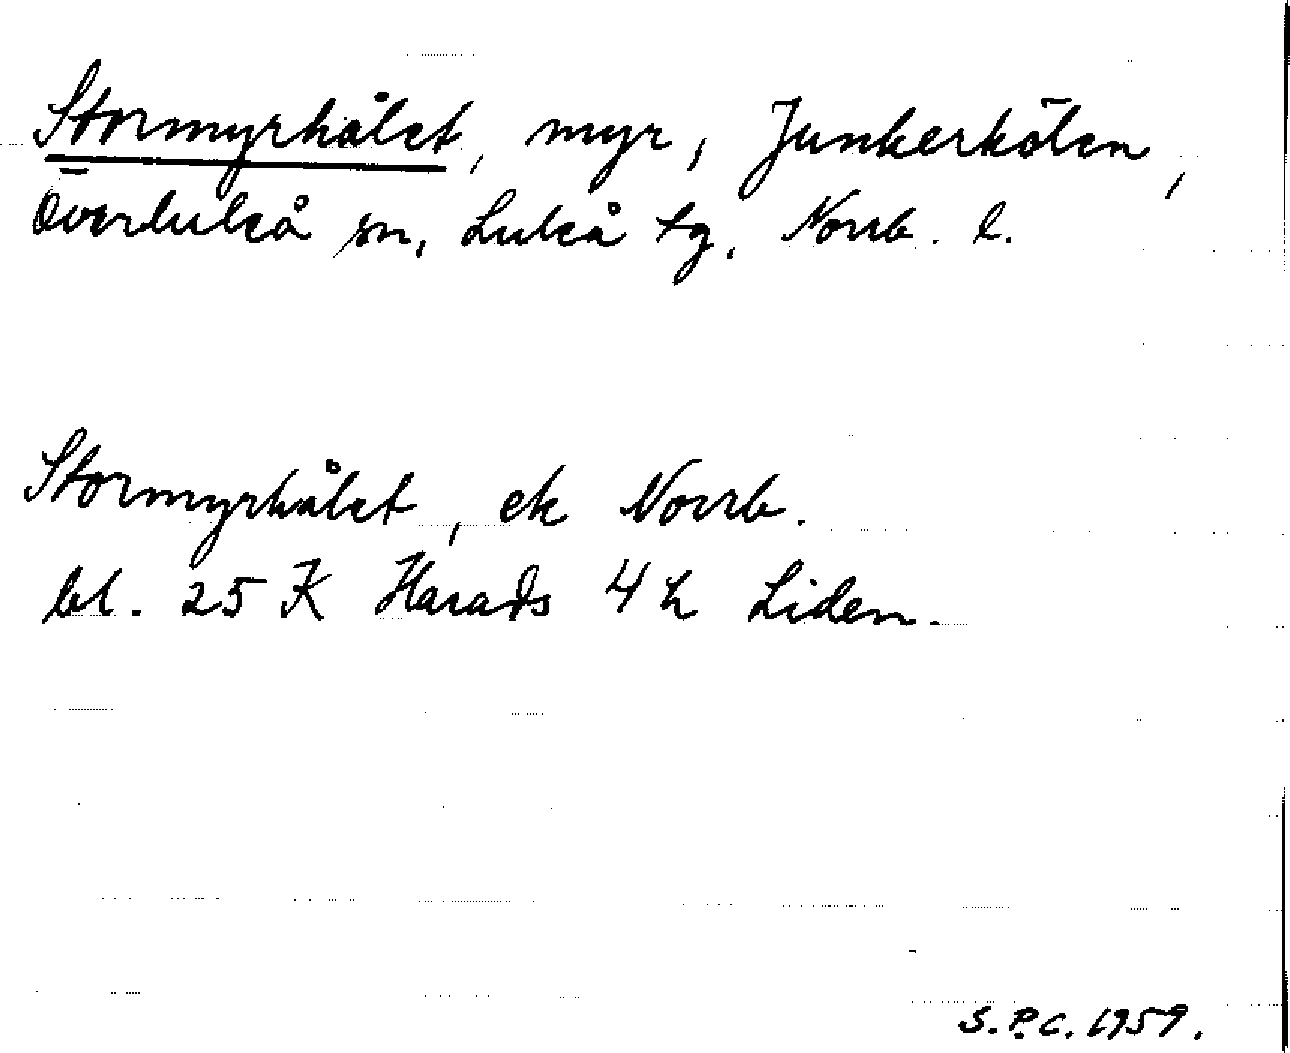 Stormyrhålet, myr, Junkerkölen,
Överluleå sn, Luleå tg. Norrb. l.
Stormyrhålet, ek Norrb.
bl. 25 K Harads 4 h Liden.
S.P.C. 1959.